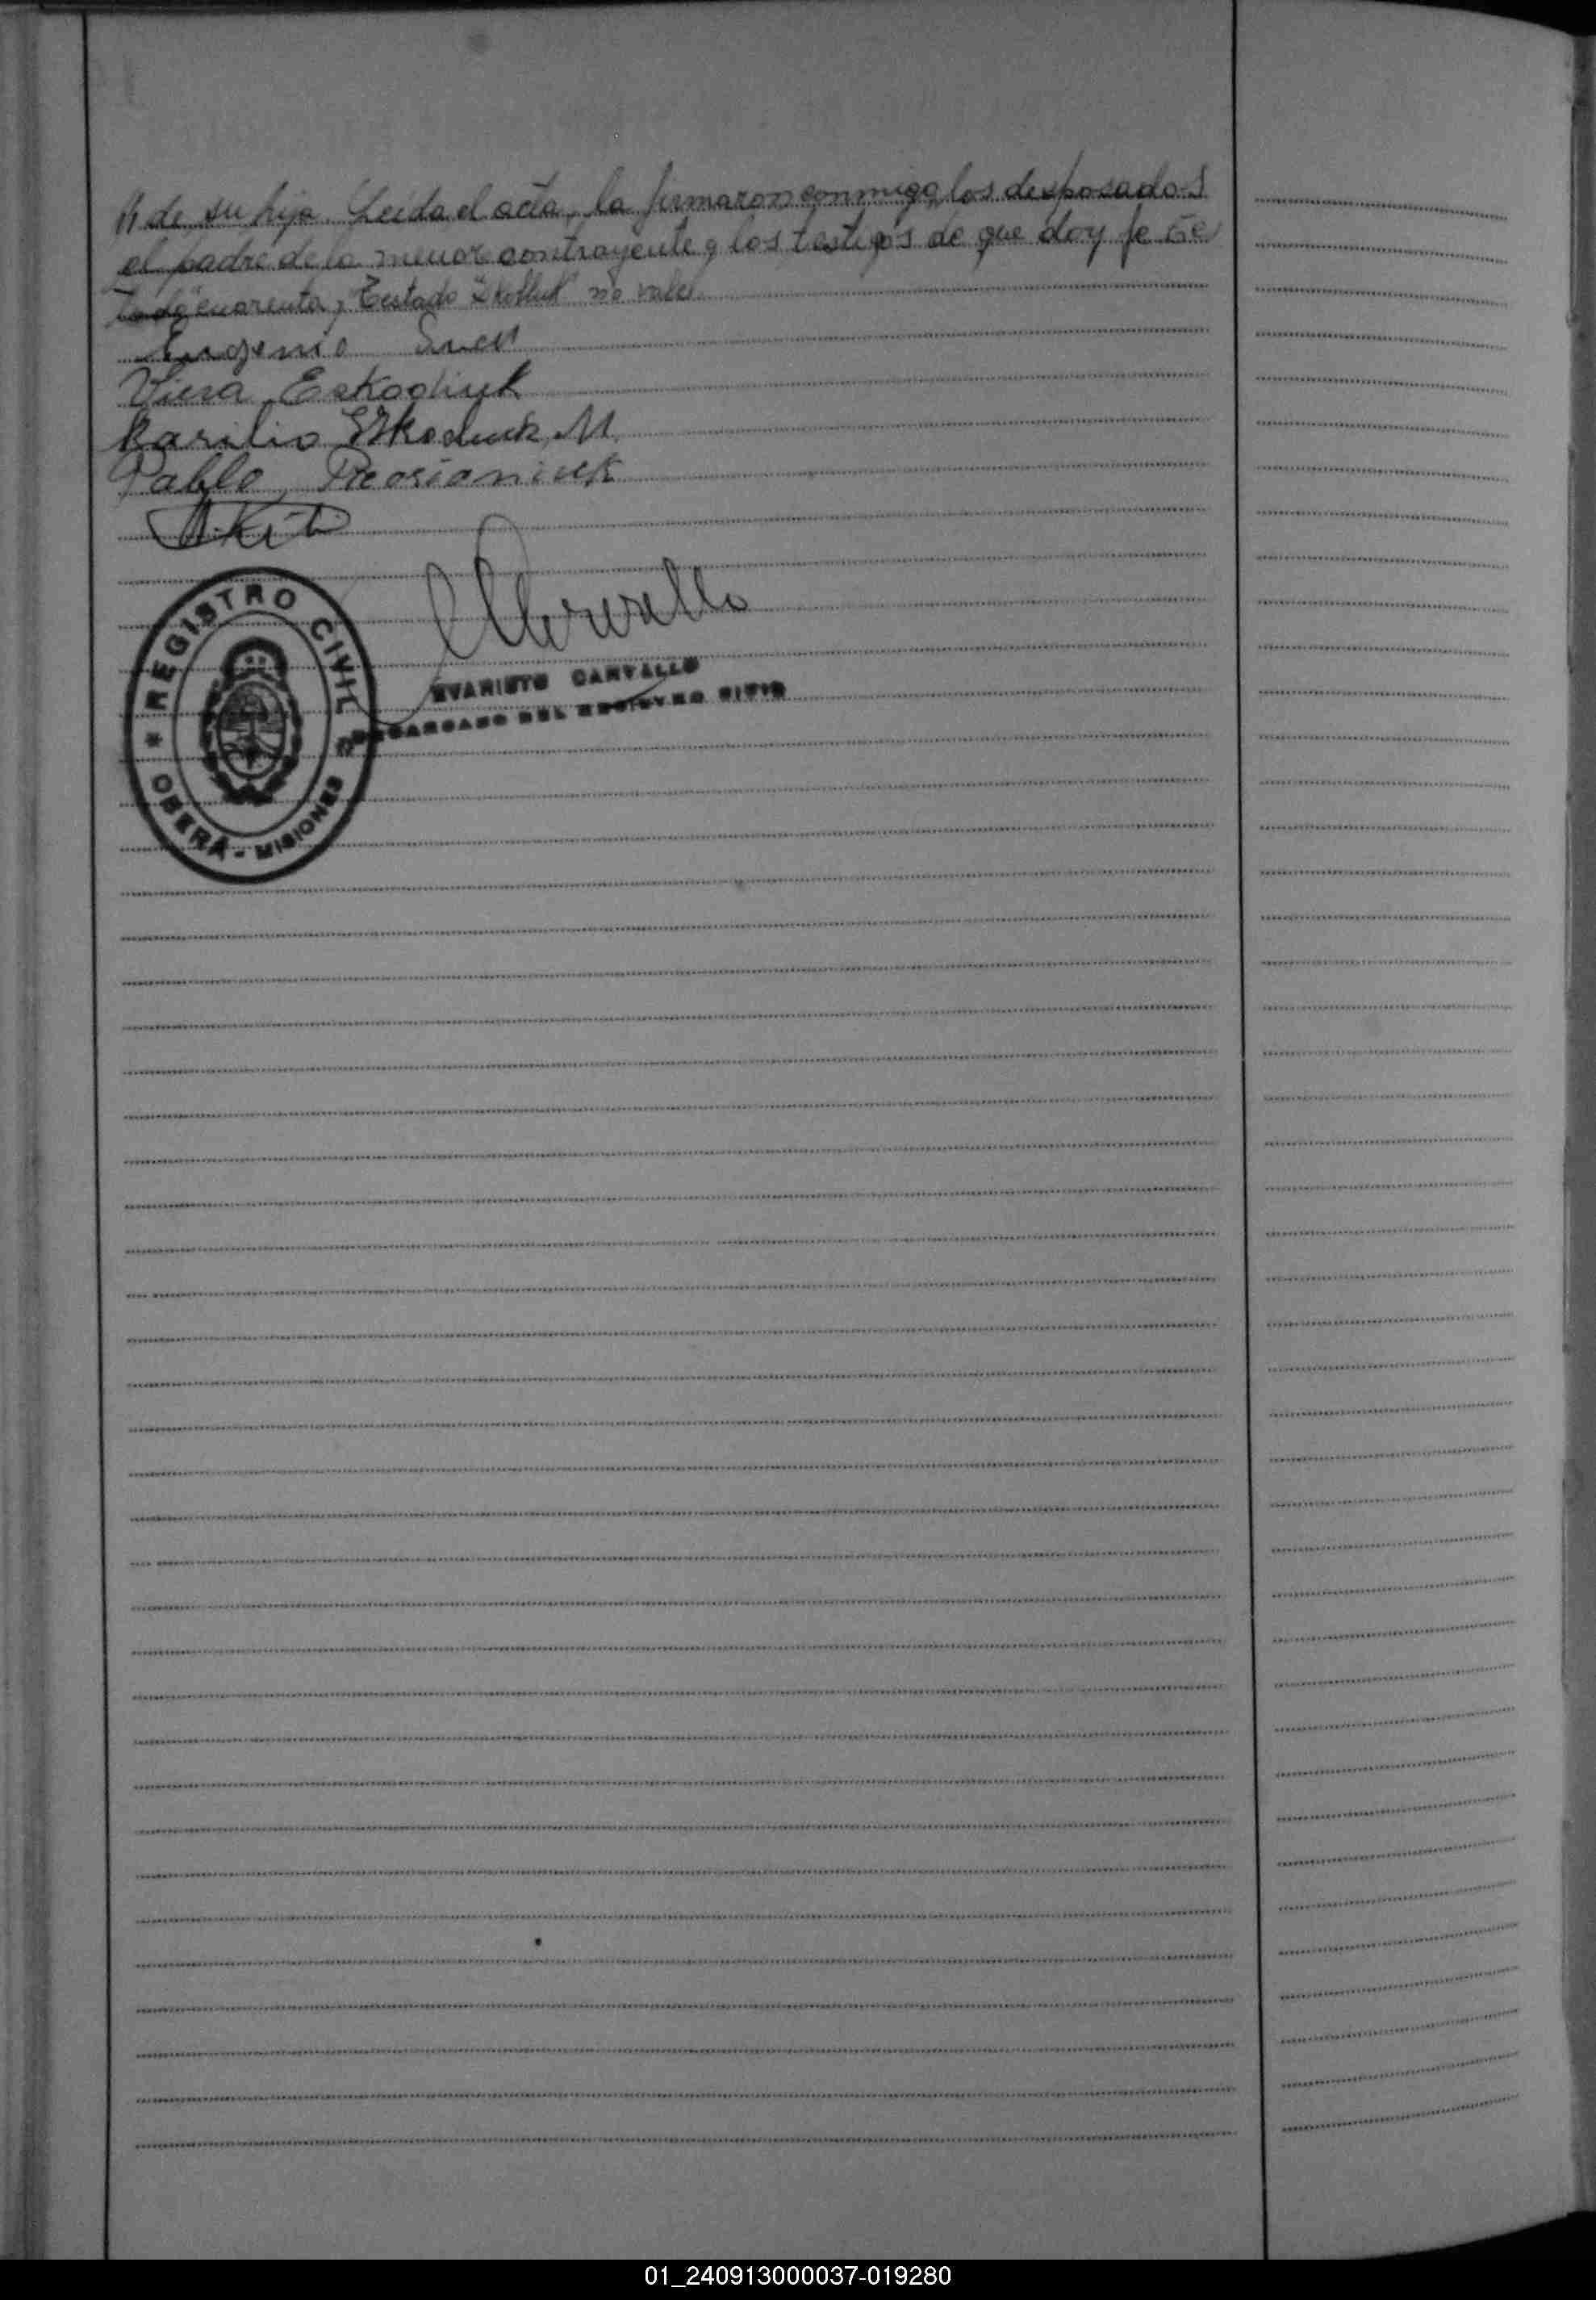 de su hija. Leida el acta, la firmaron conmigo, los desposados
el padre de la menor contrayente y los testigos de que doy fe
cuarenta, Testado no vale
Eugenio
Viera Eskodiuk
Basilio M.
Pablo
REGISTRO CIVIL
OBERÁ - MISIONES
EVARISTO CARVALLO
ENCARGADO DEL REGISTRO CIVIL
01_240913000037-019280